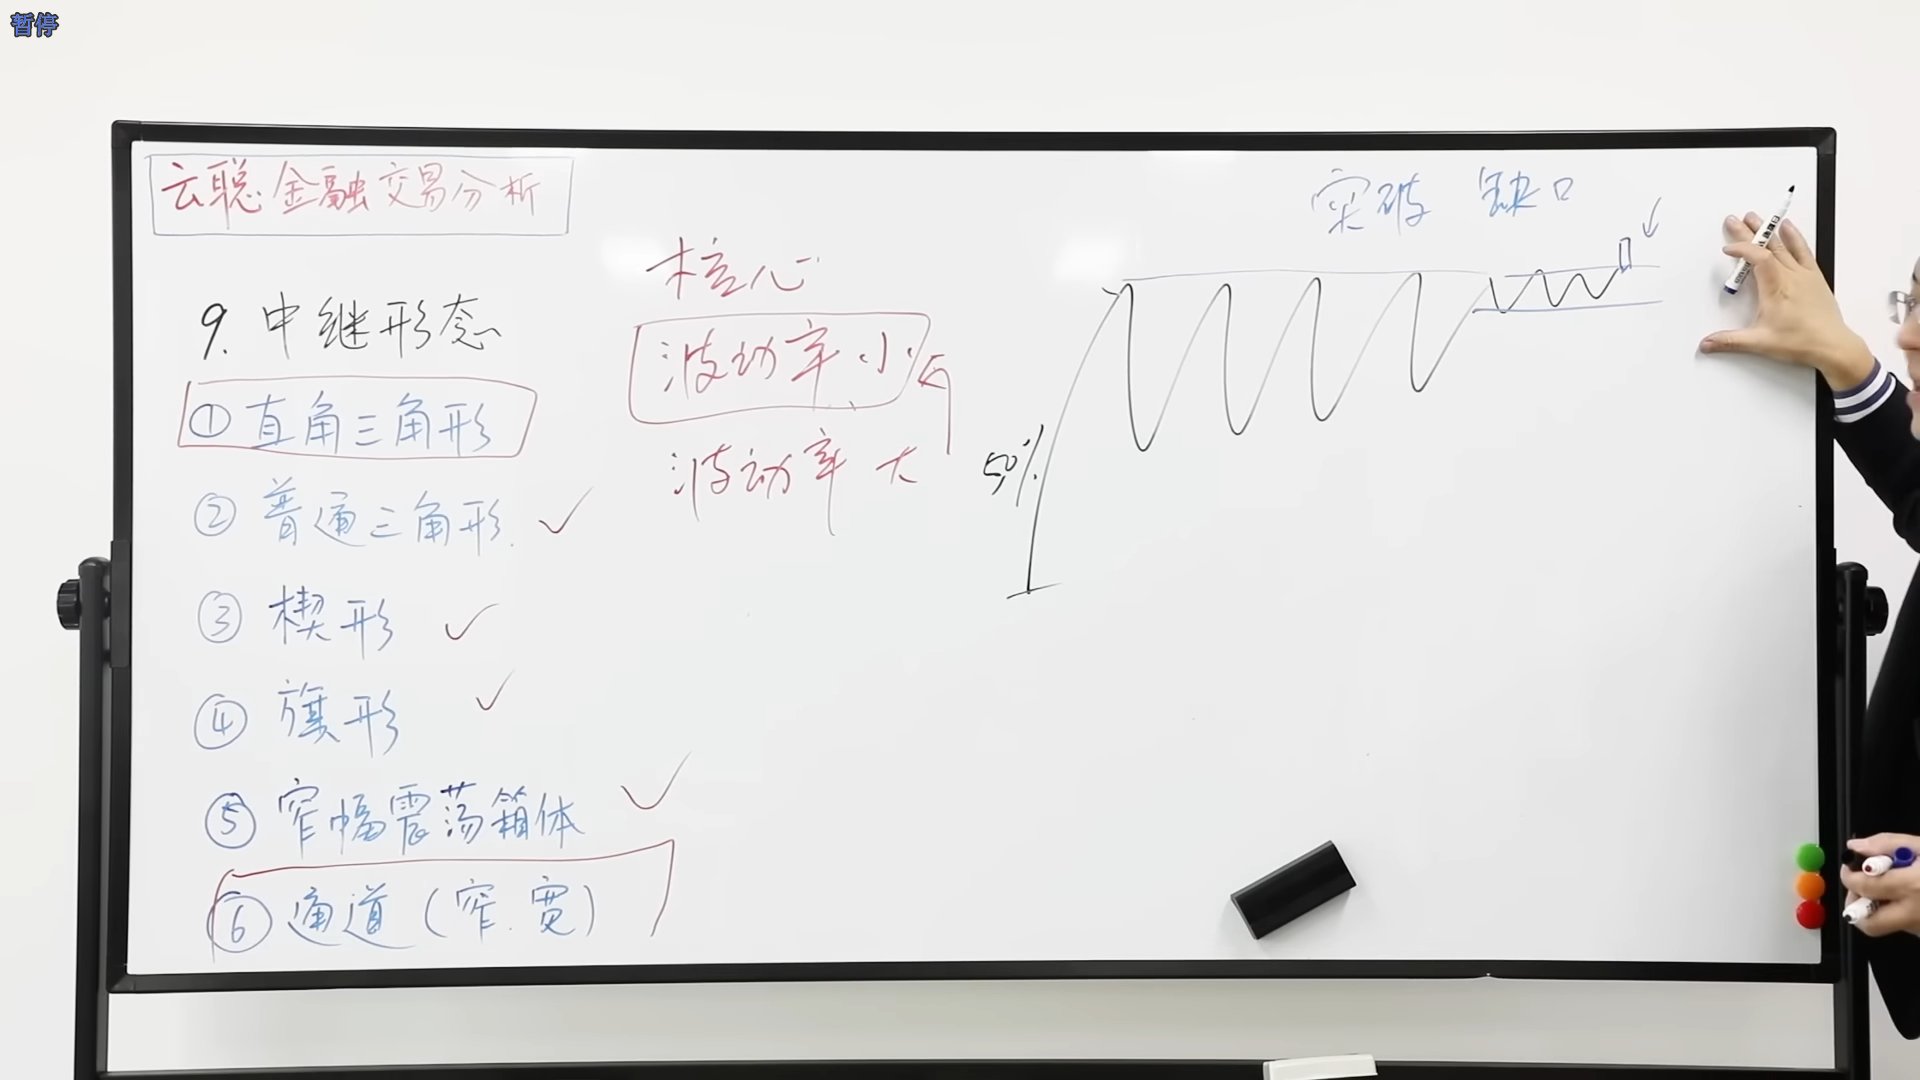 暂停
云聪金融交易分析
9. 中继形态
① 直角三角形
② 普通三角形
③ 楔形
④ 旗形
⑤ 窄幅震荡箱体
⑥ 通道（窄.宽）
核心
波动率小
波动率大
50%
突破 缺口